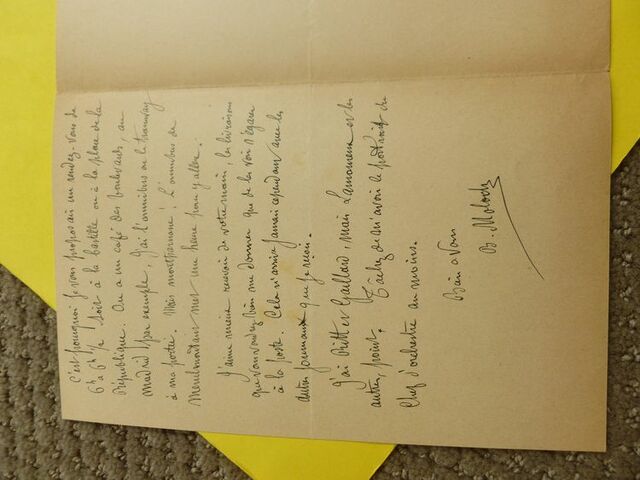 C'est pourquoi je vous proposais un rendez-vous de
6h à 6h 1/2 soit à la bastille ou à la place de la
République. Ou à un café des boulevards, au
Madrid par exemple, j'ai l'omnibus ou le tramway
à ma portée. Mais montparnasse! L'omnibus de
Menilmontant met une heure pour y aller.
J'aime mieux recevoir de votre main, les livraisons
que vous voudrez bien me donner que de les voir s'égarer
à la poste. Cela n'arrive jamais cependant avec les
autres journaux que je reçois.
J'ai Pitt et Gaillard, mais Lamoureux et les
autres, point. Tâchez qu'on ait le portrait du
Chef d'orchestre au moins.
Bien à Vous
B. Moloch